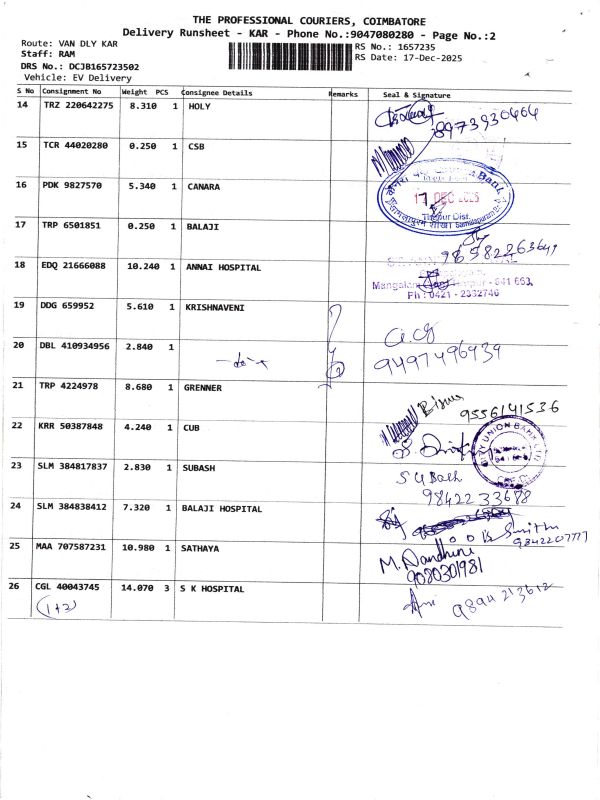 THE PROFESSIONAL COURIERS, COIMBATORE
Delivery Runsheet - KAR - Phone No.:9047080280 - Page No.:2
Route: VAN DLY KAR
RS No.: 1657235
Staff: RAM
RS Date: 17-Dec-2025
DRS No.: DCJB165723502
Vehicle: EV Delivery
S No Consignment No Weight PCS Consignee Details Remarks Seal & Signature
14 TRZ 220642275 8.310 1 HOLY
8973930464
15 TCR 44020280 0.250 1 CSB
16 PDK 9827570 5.340 1 CANARA
Bank
17 DEC 2025
Tirupur Dist.
17 TRP 6501851 0.250 1 BALAJI
18 EDQ 21666088 10.240 1 ANNAI HOSPITAL
Mangalam Tirupur - 641 663.
Ph : 0421 - 2332746
19 DDG 659952 5.610 1 KRISHNAVENI
20 DBL 410934956 2.840 1
-do-
9497496939
21 TRP 4224978 8.680 1 GRENNER
9556141536
22 KRR 50387848 4.240 1 CUB
CITY UNION BANK LTD
23 SLM 384817837 2.830 1 SUBASH
SUBash
9842233688
24 SLM 384838412 7.320 1 BALAJI HOSPITAL
Smithi
9842207777
25 MAA 707587231 10.980 1 SATHAYA
M. Nandhini
9080301981
26 CGL 40043745 14.070 3 S K HOSPITAL
(1+2)
9894213612